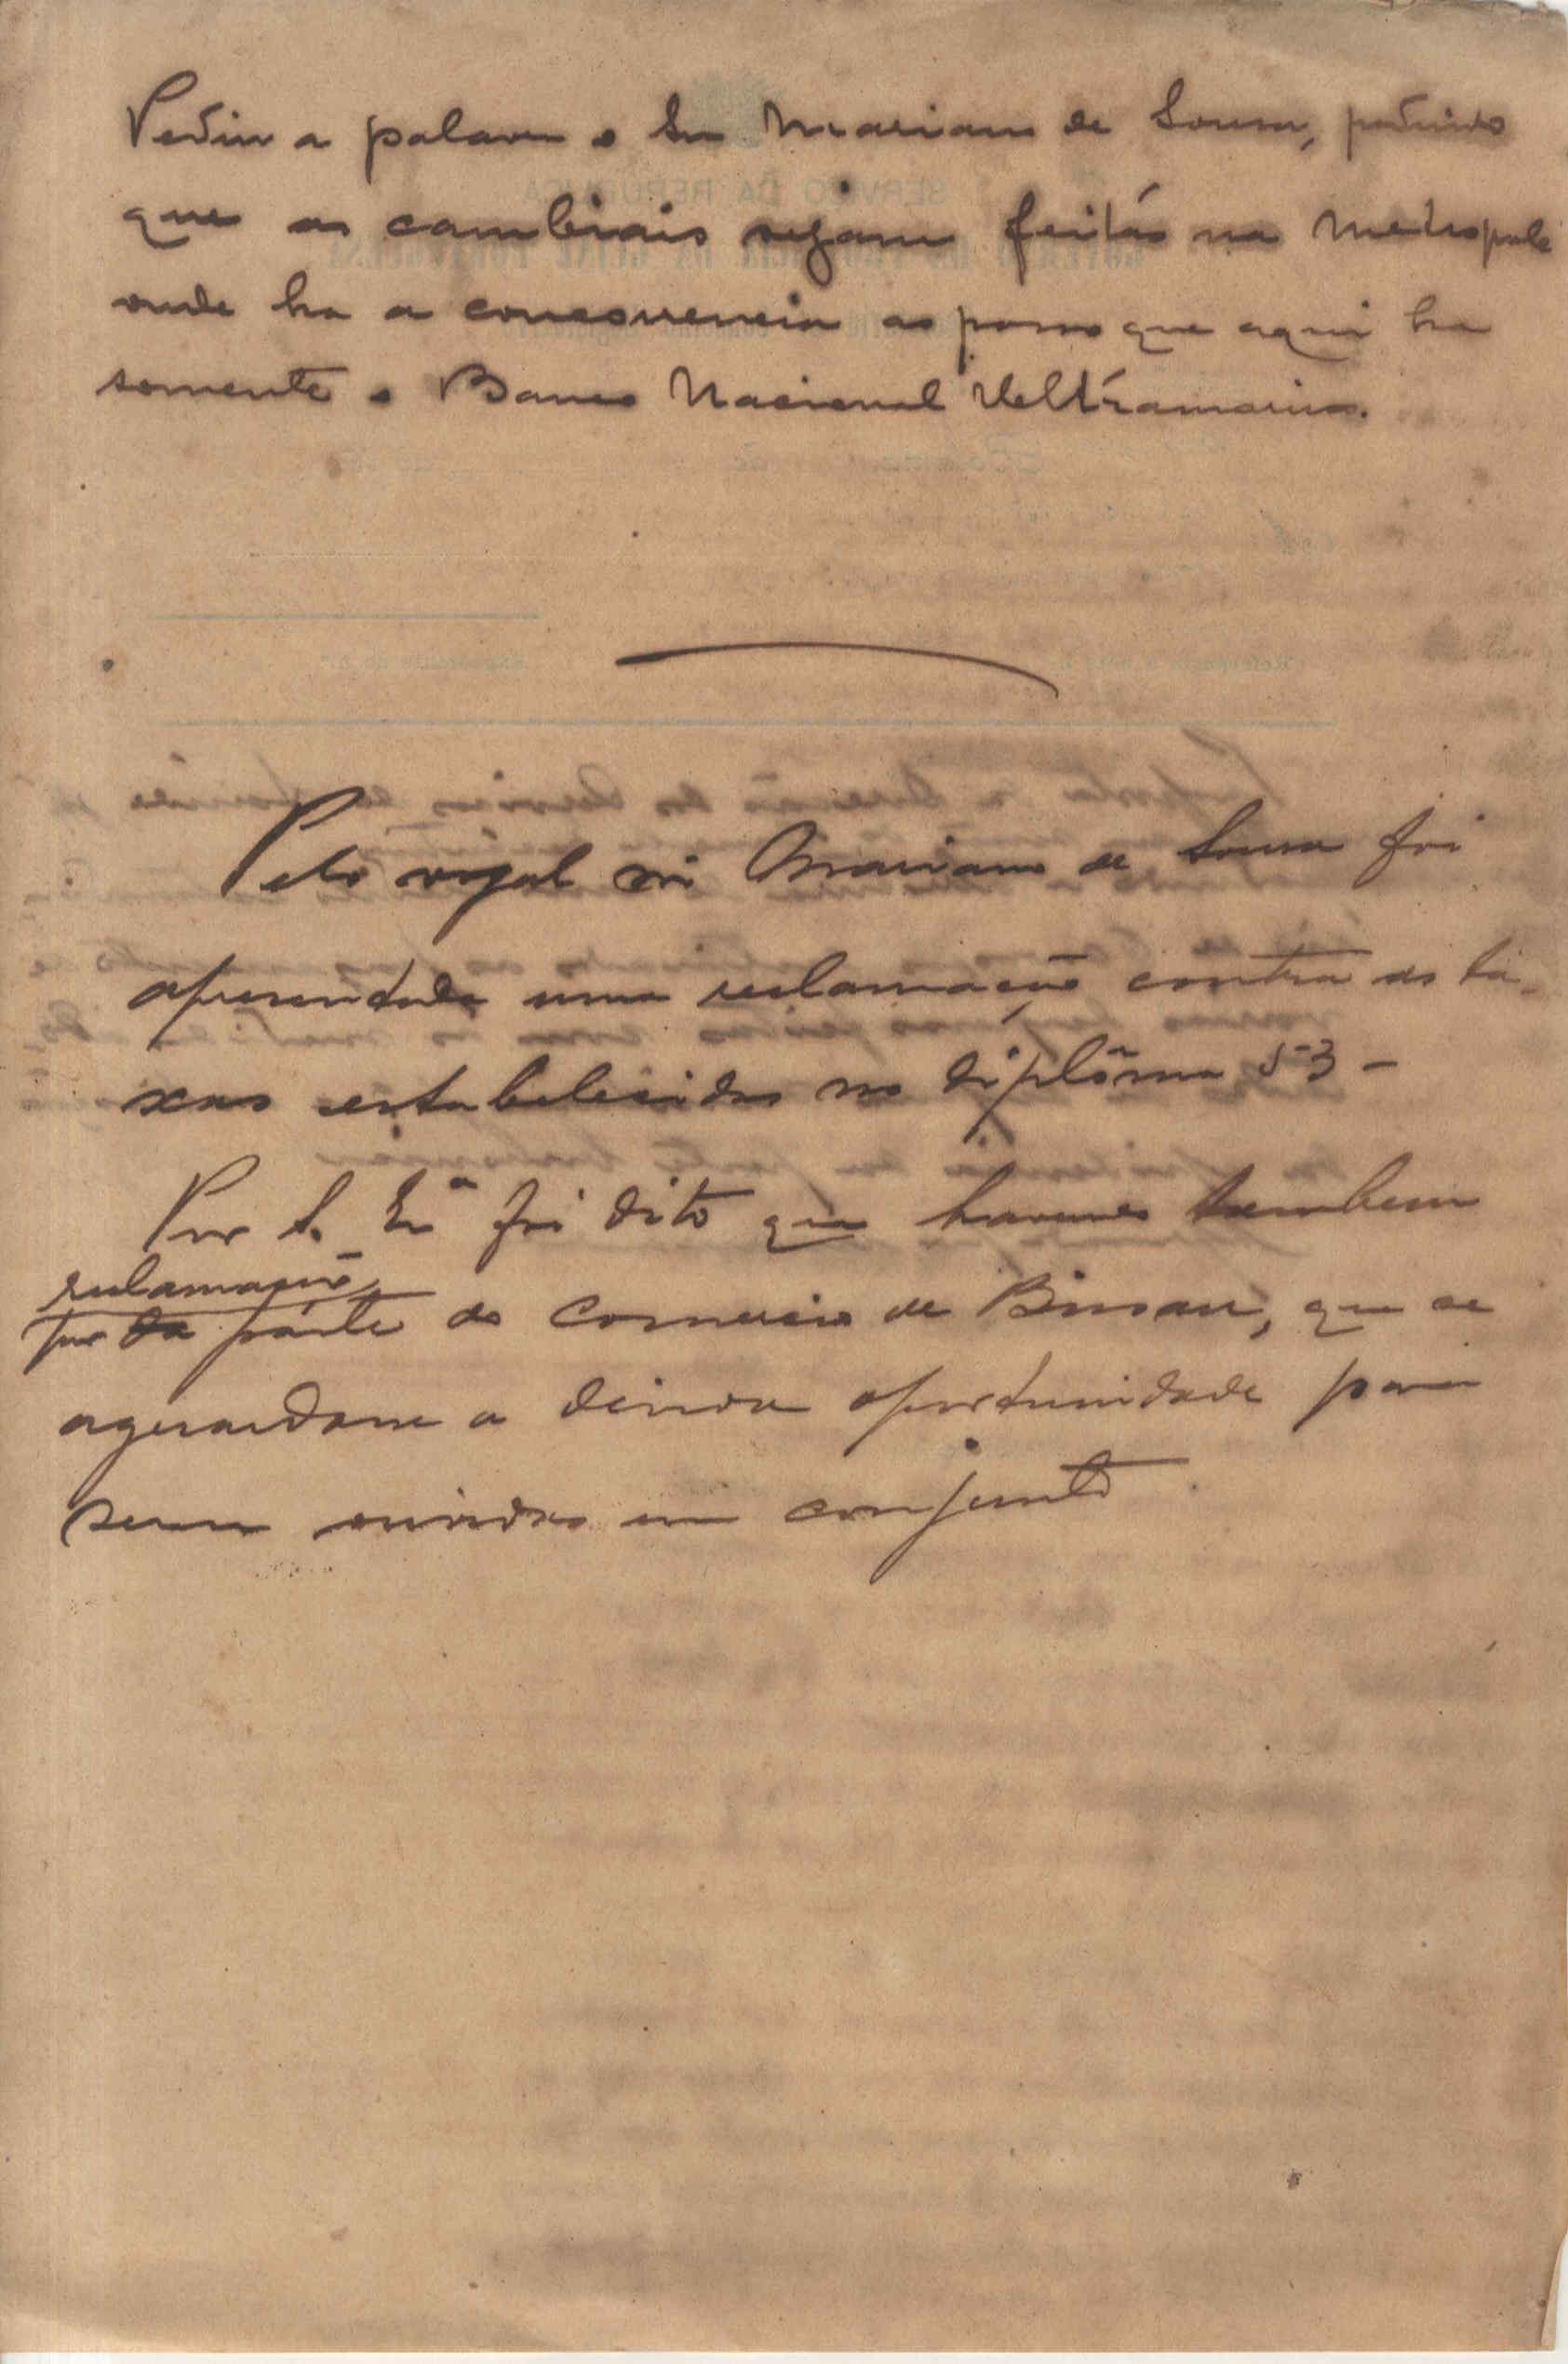 Pediu a palavra o Snr Mariano de Sousa, pedindo
que as cambiais sejam feitas na Metropole
onde ha a concorrencia ao passo que aqui ha
somente o Banco Nacional Ulltramarino.
Pelo vogal sñr Mariano de Sousa foi
apresentada uma reclamação contra as ta-
xas estabelecidas no diplôma 53 -
Por S. Exª foi dito que havendo tambem
reclamação
por da parte do Comercio de Bissau, que se
aguardam a devida oportunidade para
serem ouvidos em conjunto.